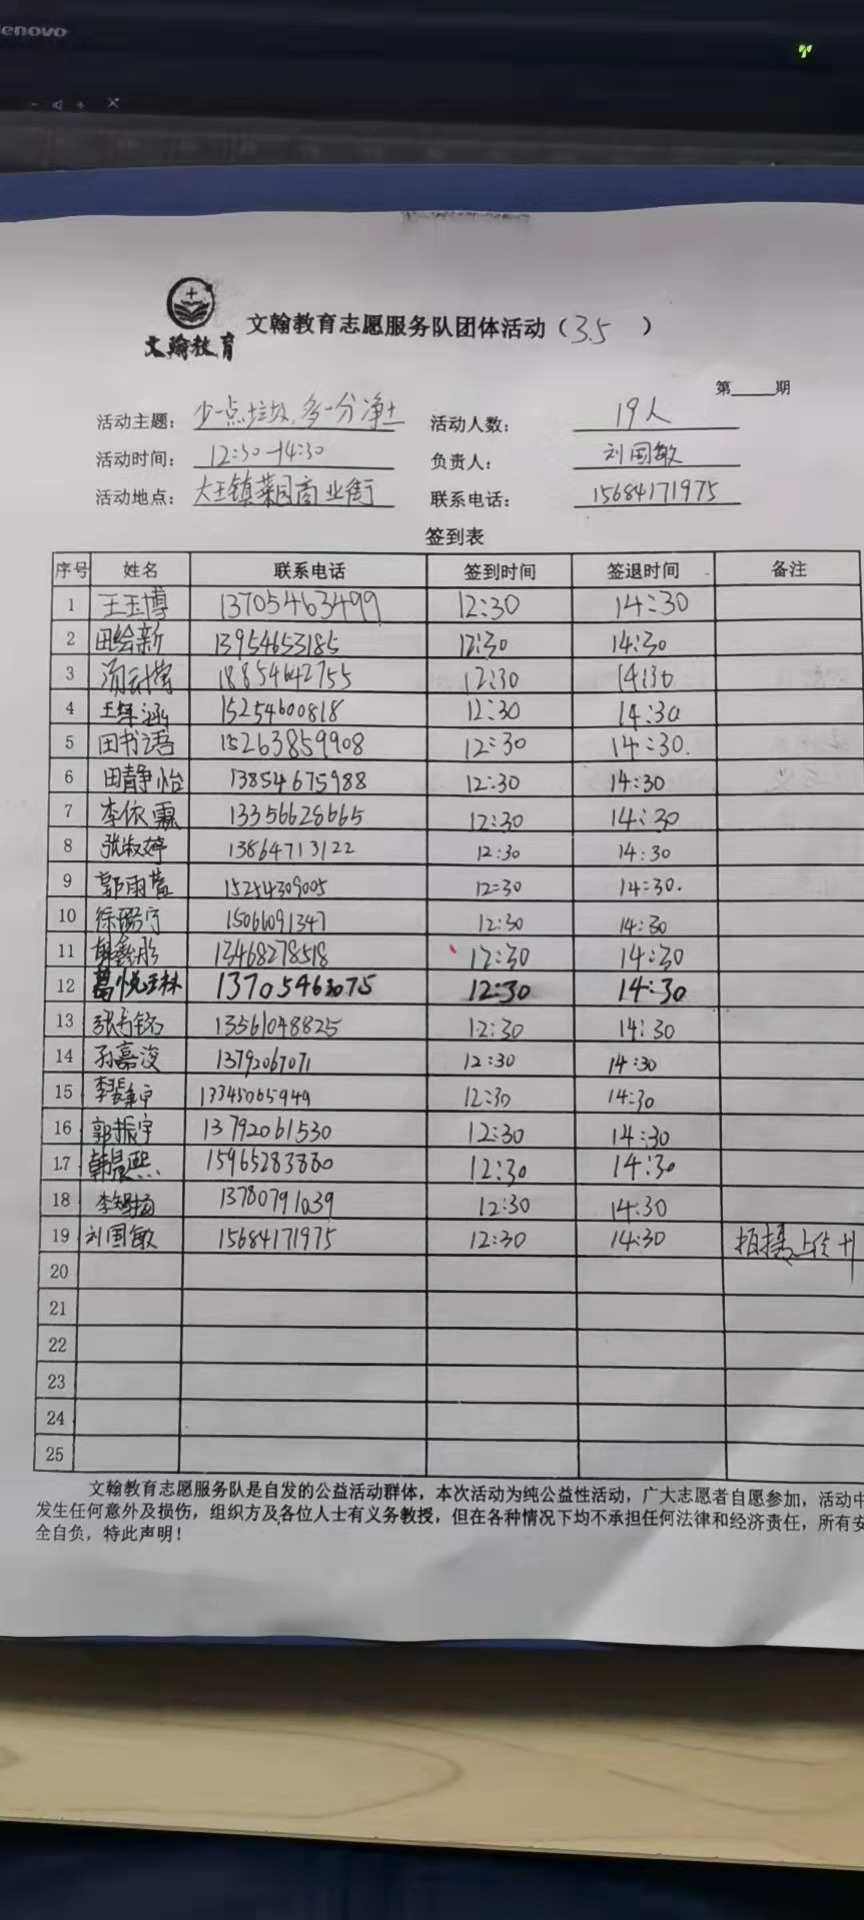 lenovo
文翰教育
文翰教育志愿服务队团体活动（3.5 ）
第____期
活动主题：少一点垃圾，多一分净土 活动人数：19人
活动时间：12:30-14:30 负责人：刘国敏
活动地点：大王镇菜园商业街 联系电话：15684171975
签到表
序号 姓名 联系电话 签到时间 签退时间 备注
1 王玉博 13705463499 12:30 14:30
2 田绘新 13954653185 12:30 14:30
3 18854642755 12:30 14:30
4 15254600818 12:30 14:30
5 田书语 15263859908 12:30 14:30.
6 田静怡 13854675988 12:30 14:30
7 李依霖 13356628665 12:30 14:30
8 张淑婷 13864713122 12:30 14:30
9 郭雨萱 15254309005 12:30 14:30.
10 徐璐宁 15066091347 12:30 14:30
11 13468278518 12:30 14:30
12 葛悦琳 13705463075 12:30 14:30
13 13561048825 12:30 14:30
14 孙嘉浚 13792067071 12:30 14:30
15 13345065949 12:30 14:30
16 郭振宇 13792061530 12:30 14:30
17 韩晨熙 15965283880 12:30 14:30
18 13780791039 12:30 14:30
19 刘国敏 15684171975 12:30 14:30 拍摄上传
20
21
22
23
24
25
文翰教育志愿服务队是自发的公益活动群体，本次活动为纯公益性活动，广大志愿者自愿参加，活动中
发生任何意外及损伤，组织方及各位人士有义务教授，但在各种情况下均不承担任何法律和经济责任，所有安
全自负，特此声明！